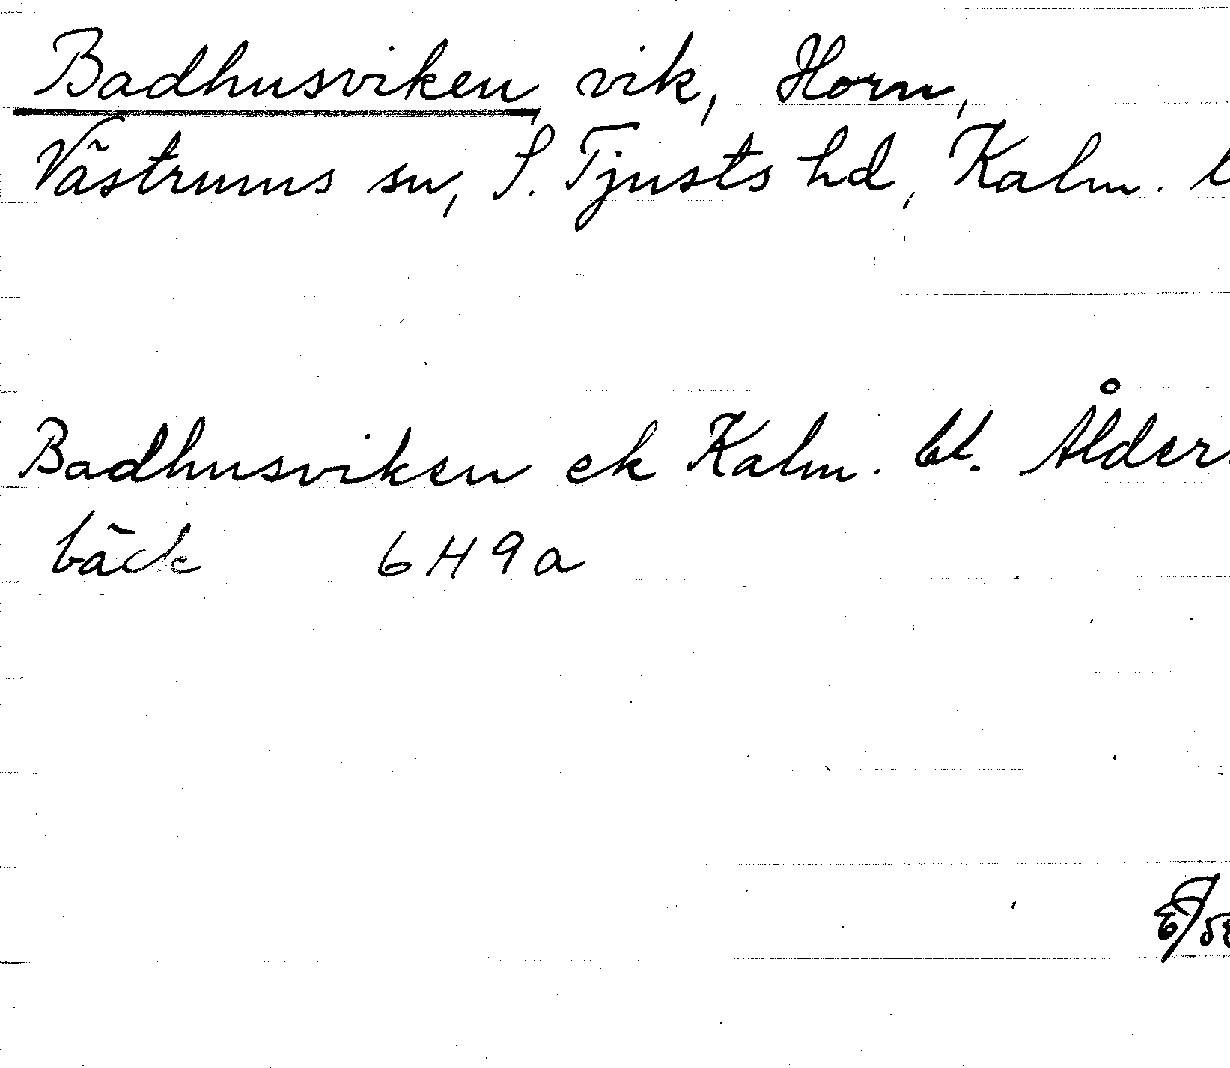 Badhusviken, vik, Horn,
Västrums sn, S. Tjusts hd, Kalm. l
Badhusviken ek Kalm. bl. Ålder
bäck 6H9a